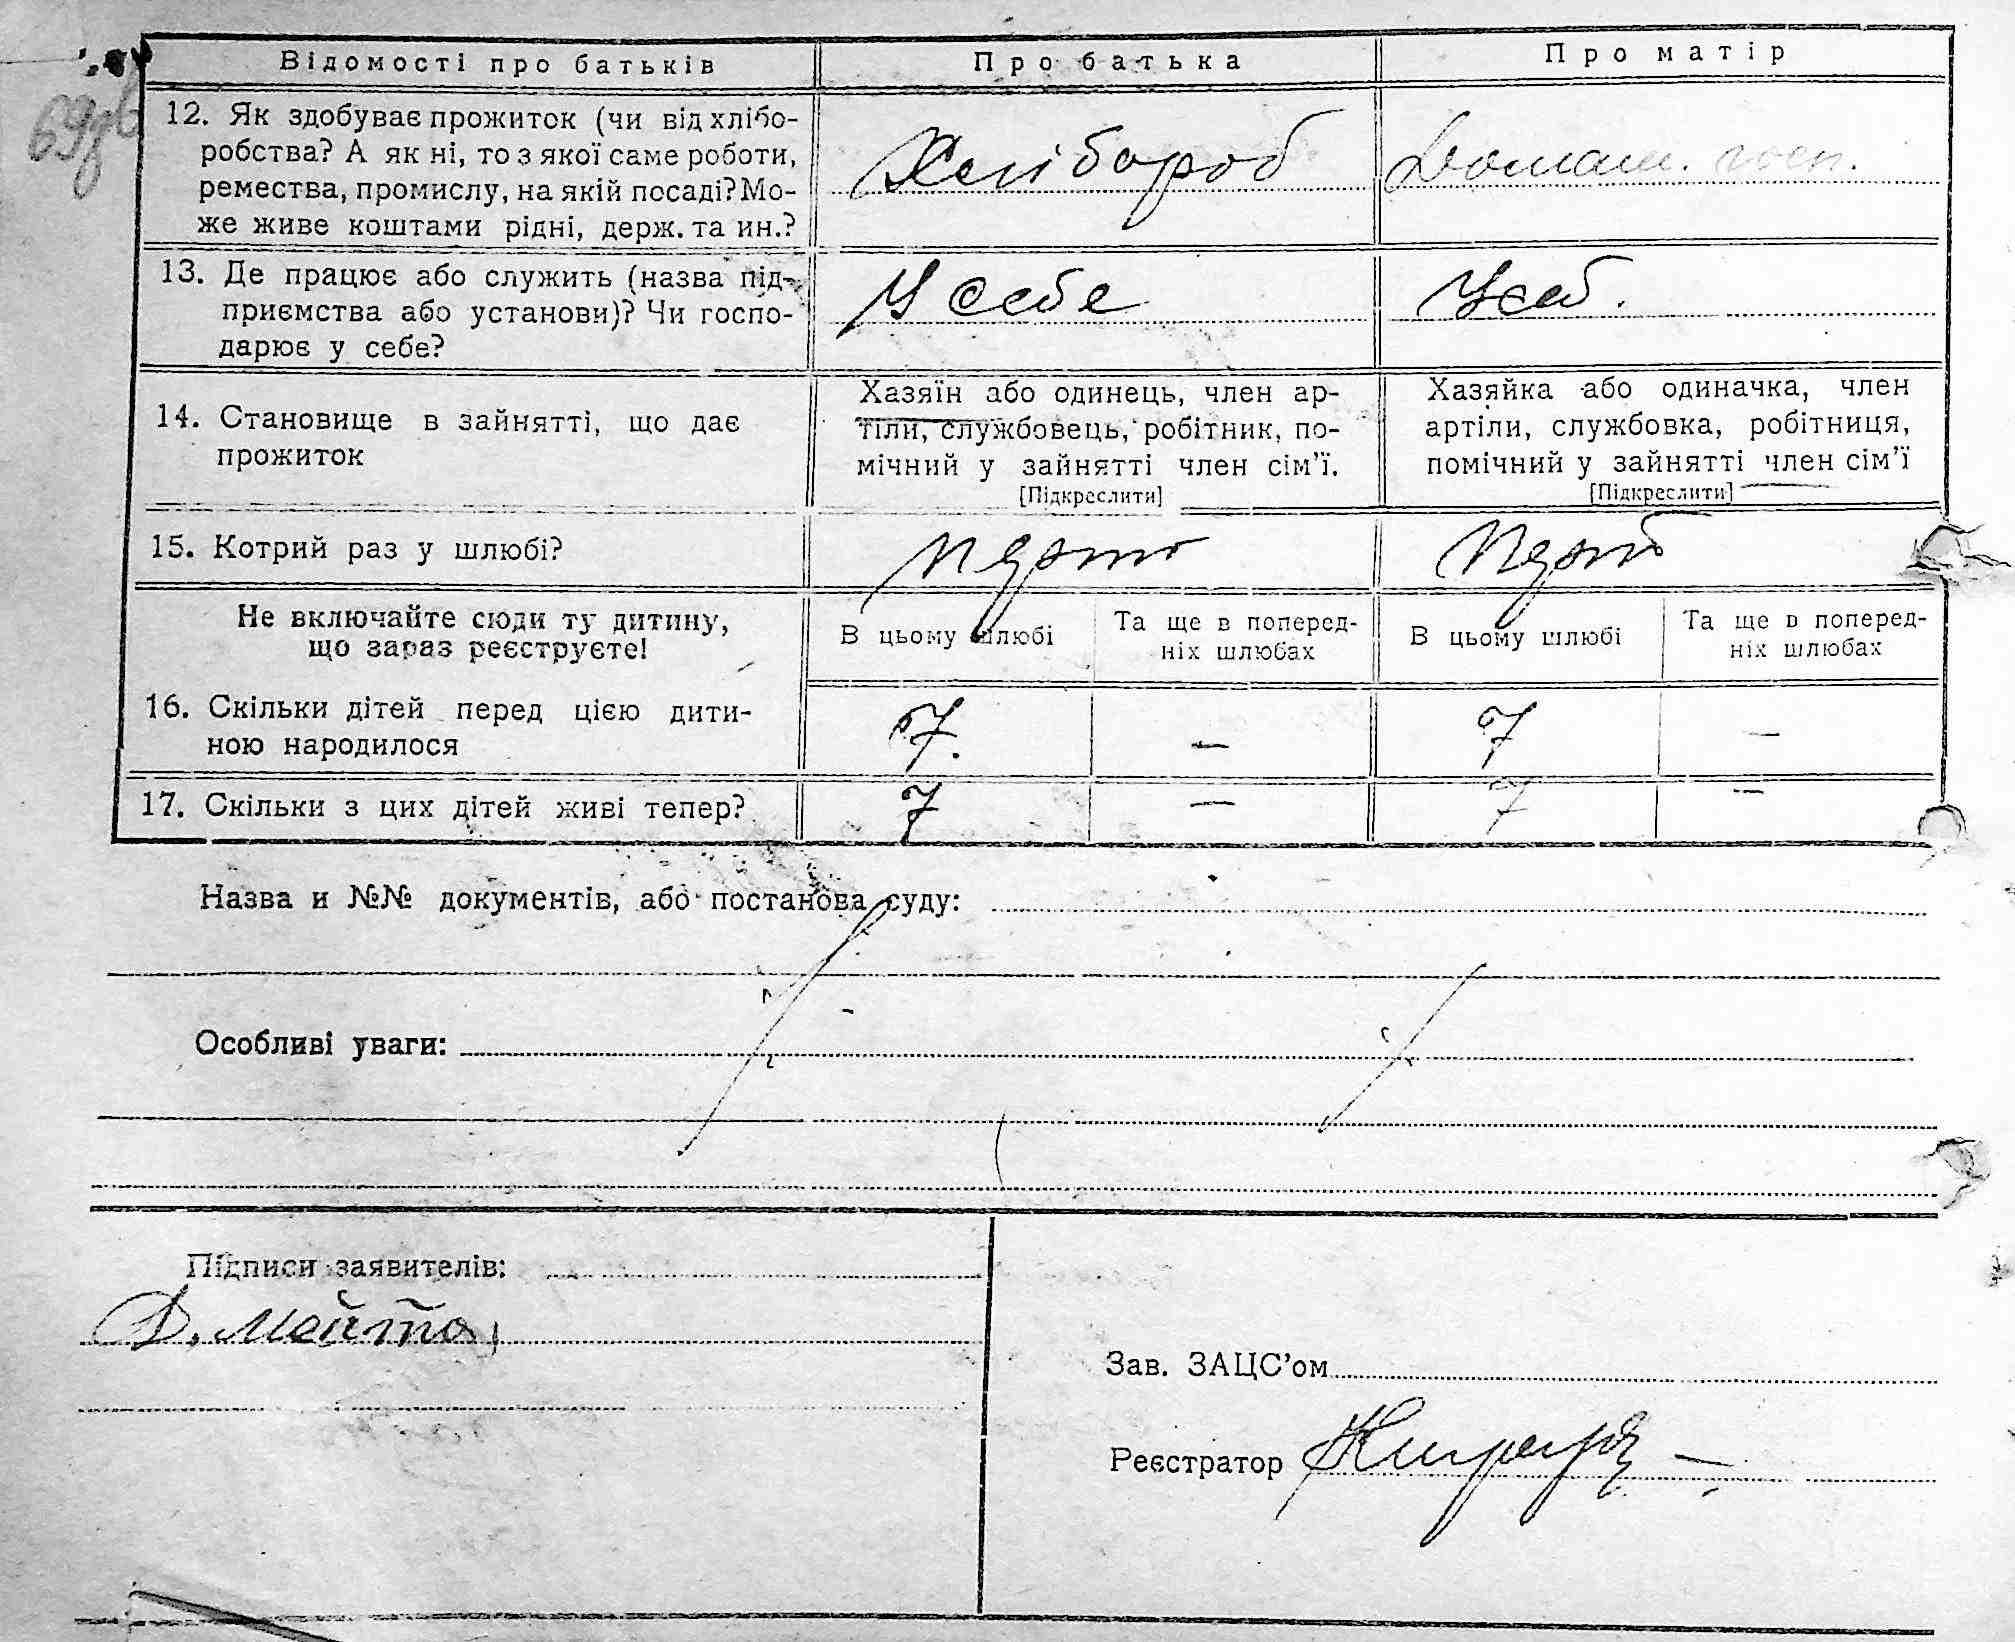 Відомості про батьків Про батька Про матір
69зв
12. Як здобуває прожиток (чи від хлібо-
робства? А як ні, то з якої саме роботи,
ремества, промислу, на якій посаді? Мо-
же живе коштами рідні, держ. та ин.?
Хлібороб Домаш. госп.
13. Де працює або служить (назва під-
приємства або установи)? Чи госпо-
дарює у себе?
У себе У себ.
14. Становище в зайнятті, що дає
прожиток
Хазяїн або одинець, член ар-
тіли, службовець, робітник, по-
мічний у зайнятті член сім’ї.
[Підкреслити]
Хазяйка або одиначка, член
артіли, службовка, робітниця,
помічний у зайнятті член сім’ї
[Підкреслити]
15. Котрий раз у шлюбі?
Не включайте сюди ту дитину,
що зараз реєструєте!
В цьому шлюбі
Та ще в поперед-
ніх шлюбах
В цьому шлюбі
Та ще в поперед-
ніх шлюбах
16. Скільки дітей перед цією дити-
ною народилося
7. — 7 —
17. Скільки з цих дітей живі тепер? 7 — 7 —
Назва и №№ документів, або постанова суду:
Особливі уваги:
Підписи заявителів:
Д. Мойта
Зав. ЗАЦС’ом
Реєстратор